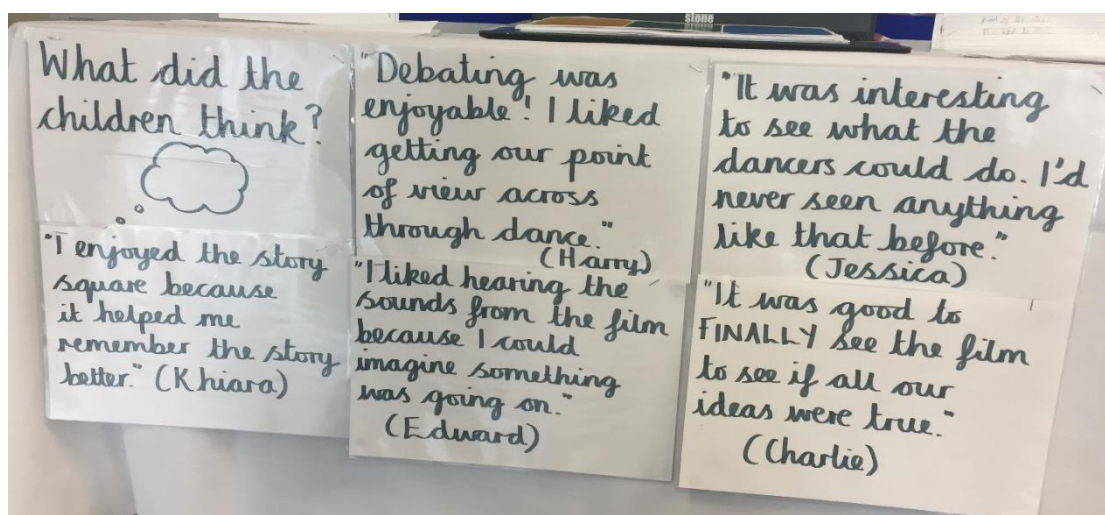 stone
What did the
children think?
"I enjoyed the story
square because
it helped me
remember the story
better." (Khiara)
"Debating was
enjoyable! I liked
getting our point
of view across
through dance."
(Harry)
"I liked hearing the
sounds from the film
because I could
imagine something
was going on."
(Edward)
"It was interesting
to see what the
dancers could do. I'd
never seen anything
like that before."
(Jessica)
"It was good to
FINALLY see the film
to see if all our
ideas were true."
(Charlie)